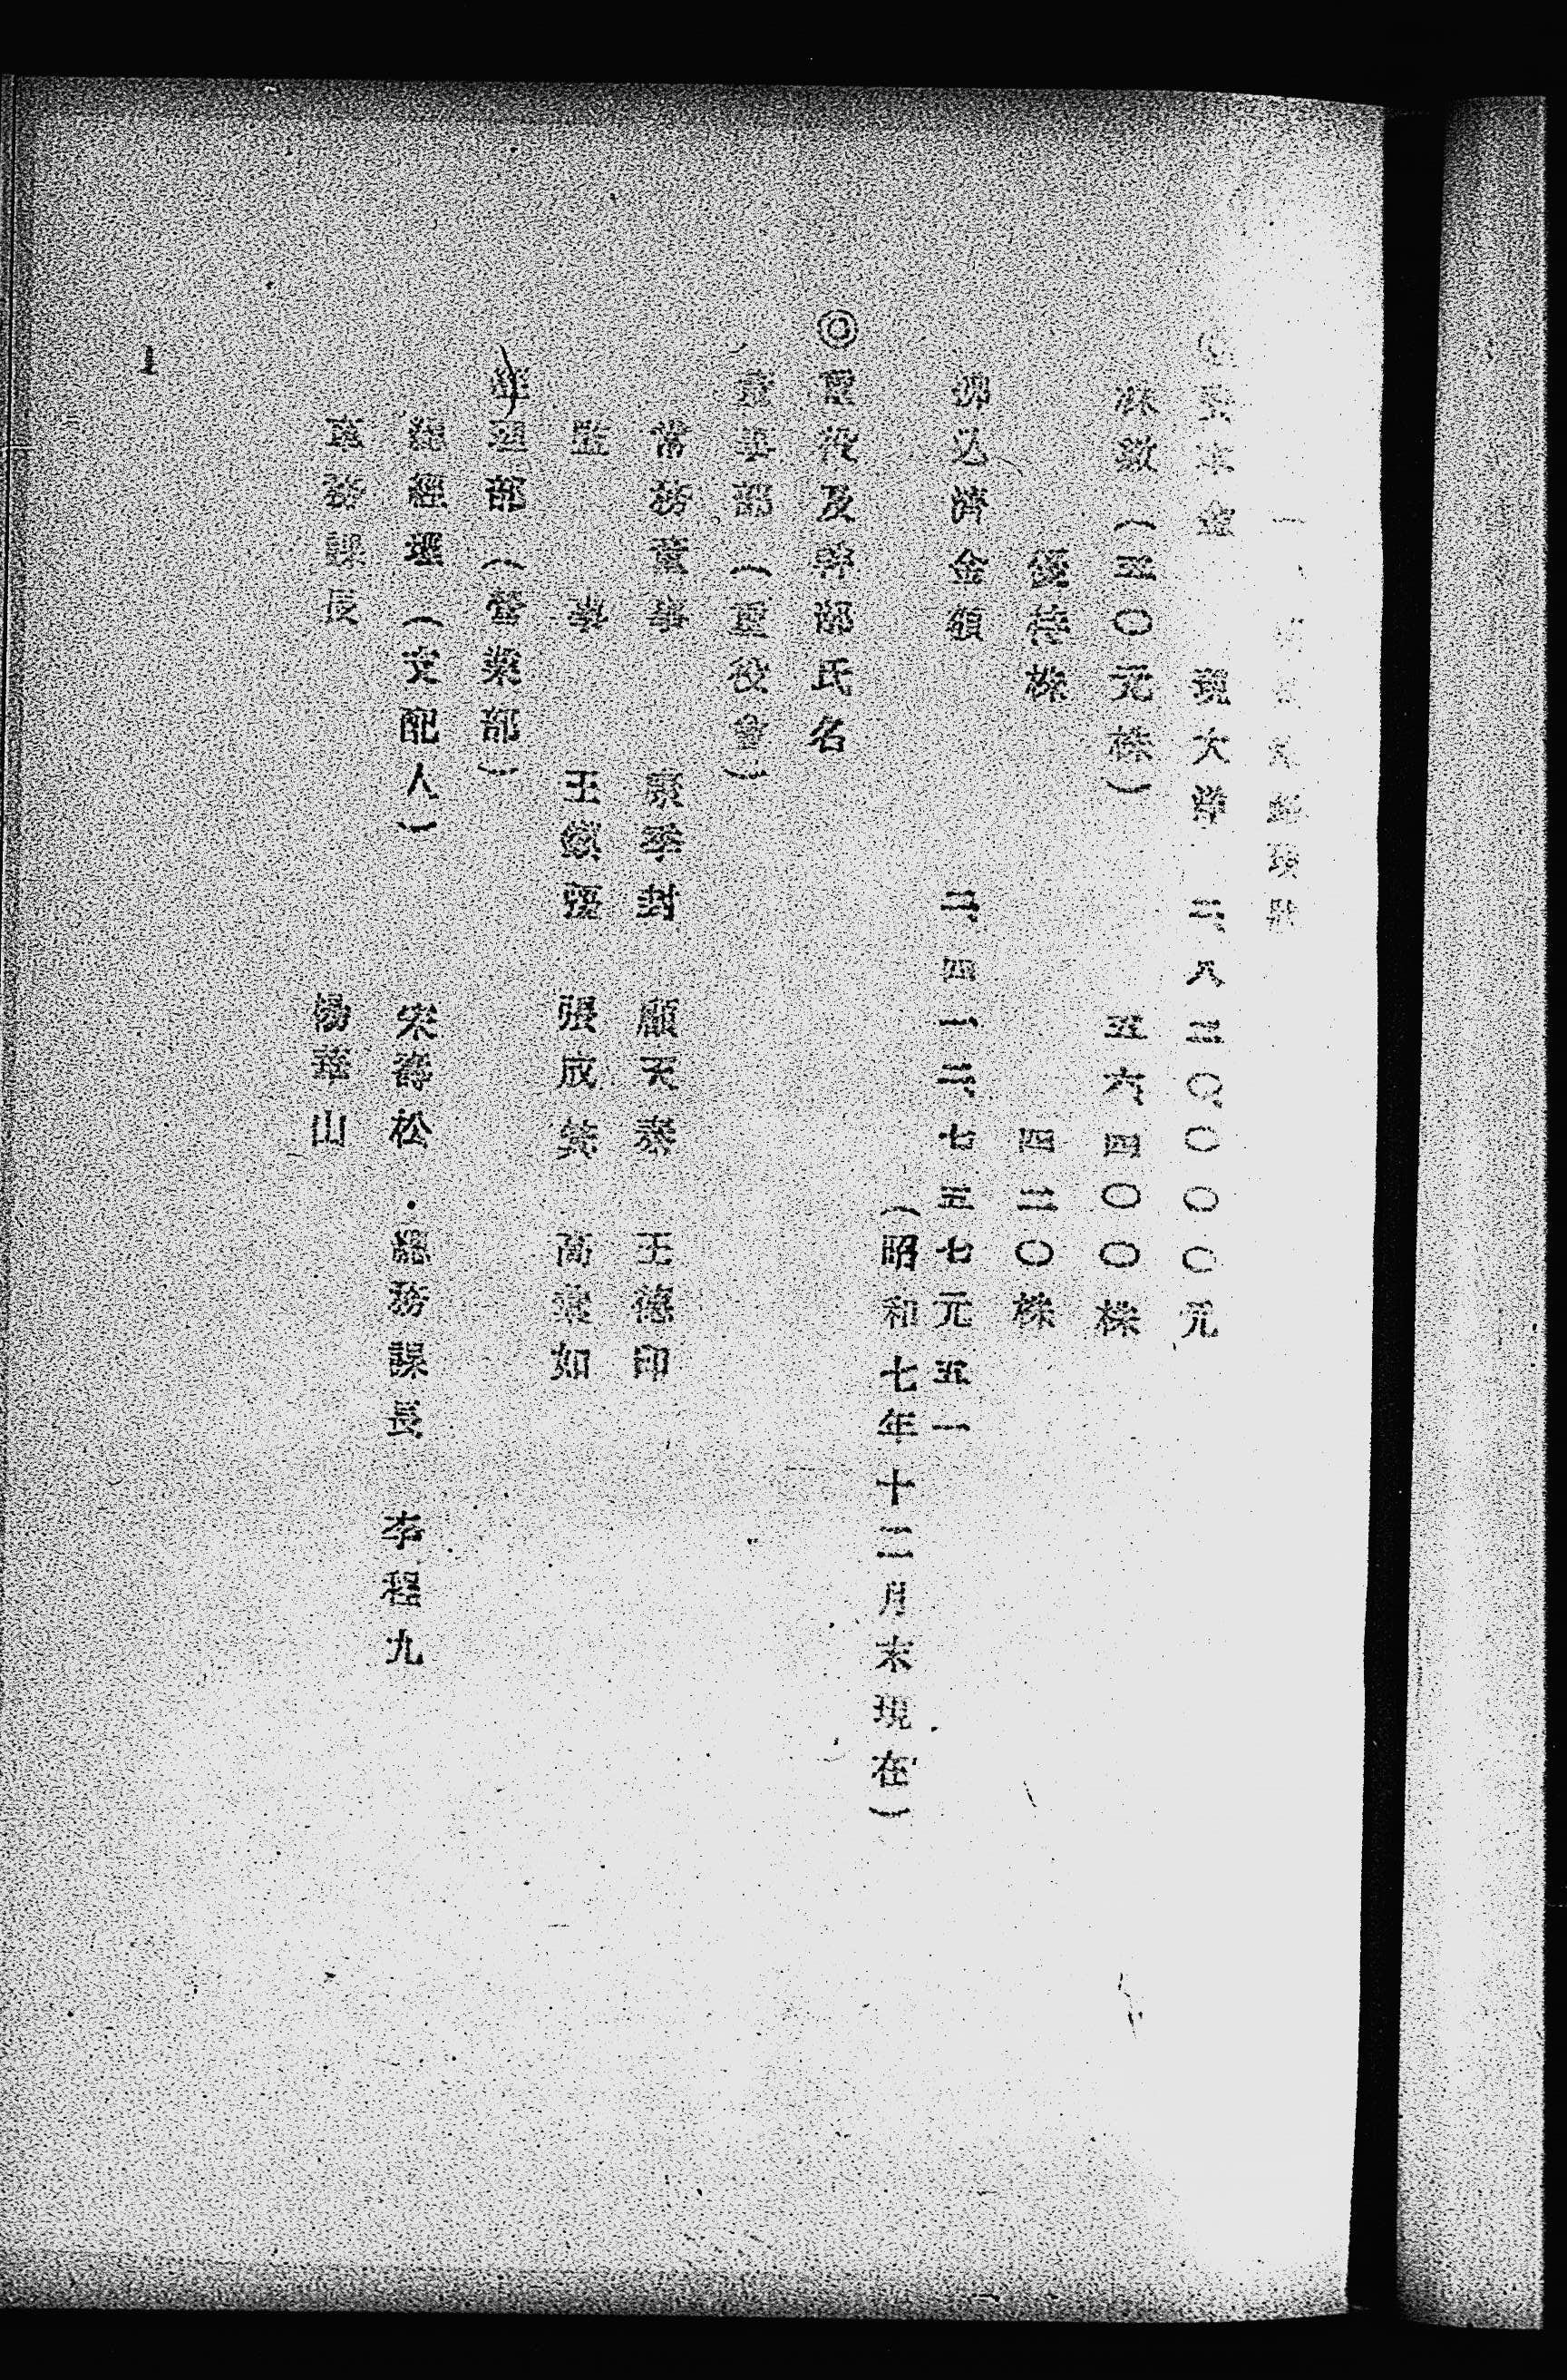 資本金 現大洋 二、八二〇、〇〇〇元
株數(五〇元株) 五六、四〇〇株
優待株 四二〇株
拂込濟金額 二、四一二、七五七元五一
(昭和七年十二月末現在)
◎重役及幹部氏名
董事部(重役會)
常務董事 康季封 顧天泰 王德印
監 事 王 張成箕 萬 如
經理部(營業部)
總經理(支配人) 宋壽松・總務課長 李程九
車務課長 楊華山
1